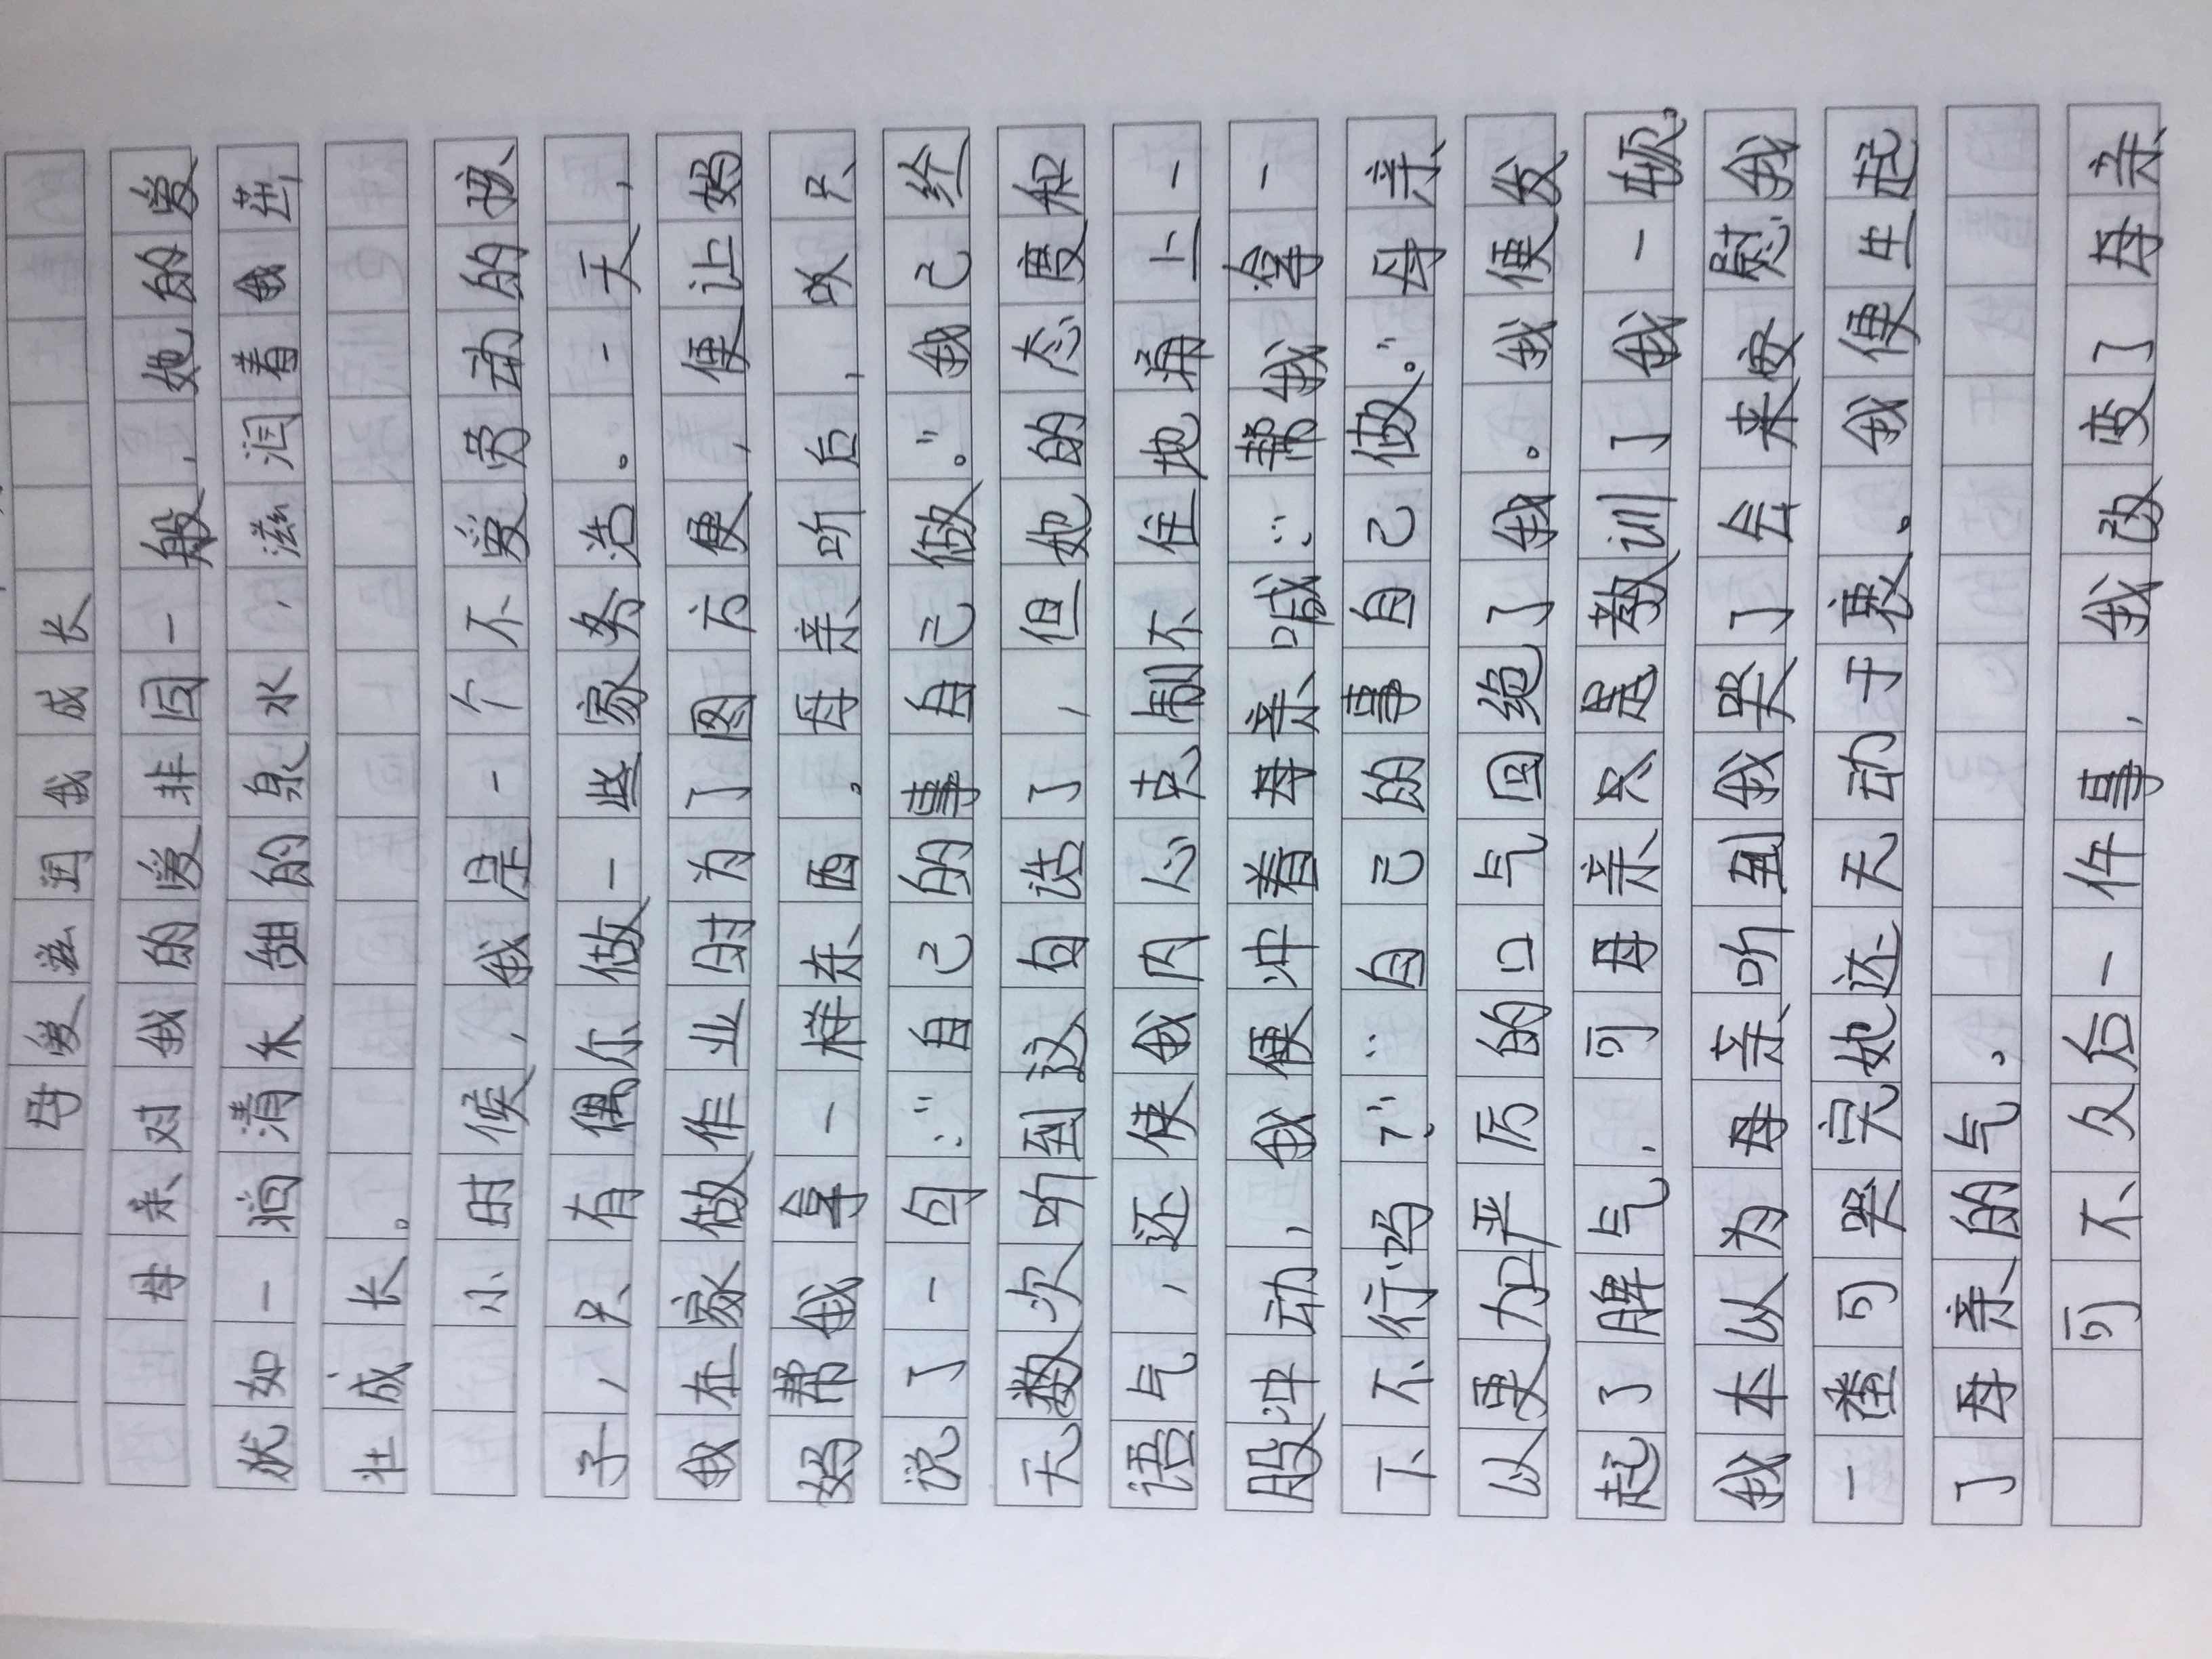 母爱滋润我成长
母亲对我的爱非同一般，她的爱
状如一涓清未细的泉水，滋润着我茁，
壮成长。
小时候，我是一个不爱劳动的孩
子，只有偶尔做一些家务活。一天，
我在家做作业时为了图方便，便让妈
妈帮我拿一样东西。母亲听后，哎只
说了一句：“自己的事自己做。”我已经
无数次听到这句话了，但她的态度和
语气，还使我内心克制不住地涌上一
股冲动，我便冲着母亲喊：“帮我拿一
下不行吗？”“自己的事自己做。”母亲
以更加严厉的口气回绝了我。我便发
起了脾气，可母亲只是教训了我一顿。
我本以为母亲听到我哭了会来安慰我
一番可哭完她还无动于衷。我便生起
了母亲的气。
可不久后一件事，我改变了母亲